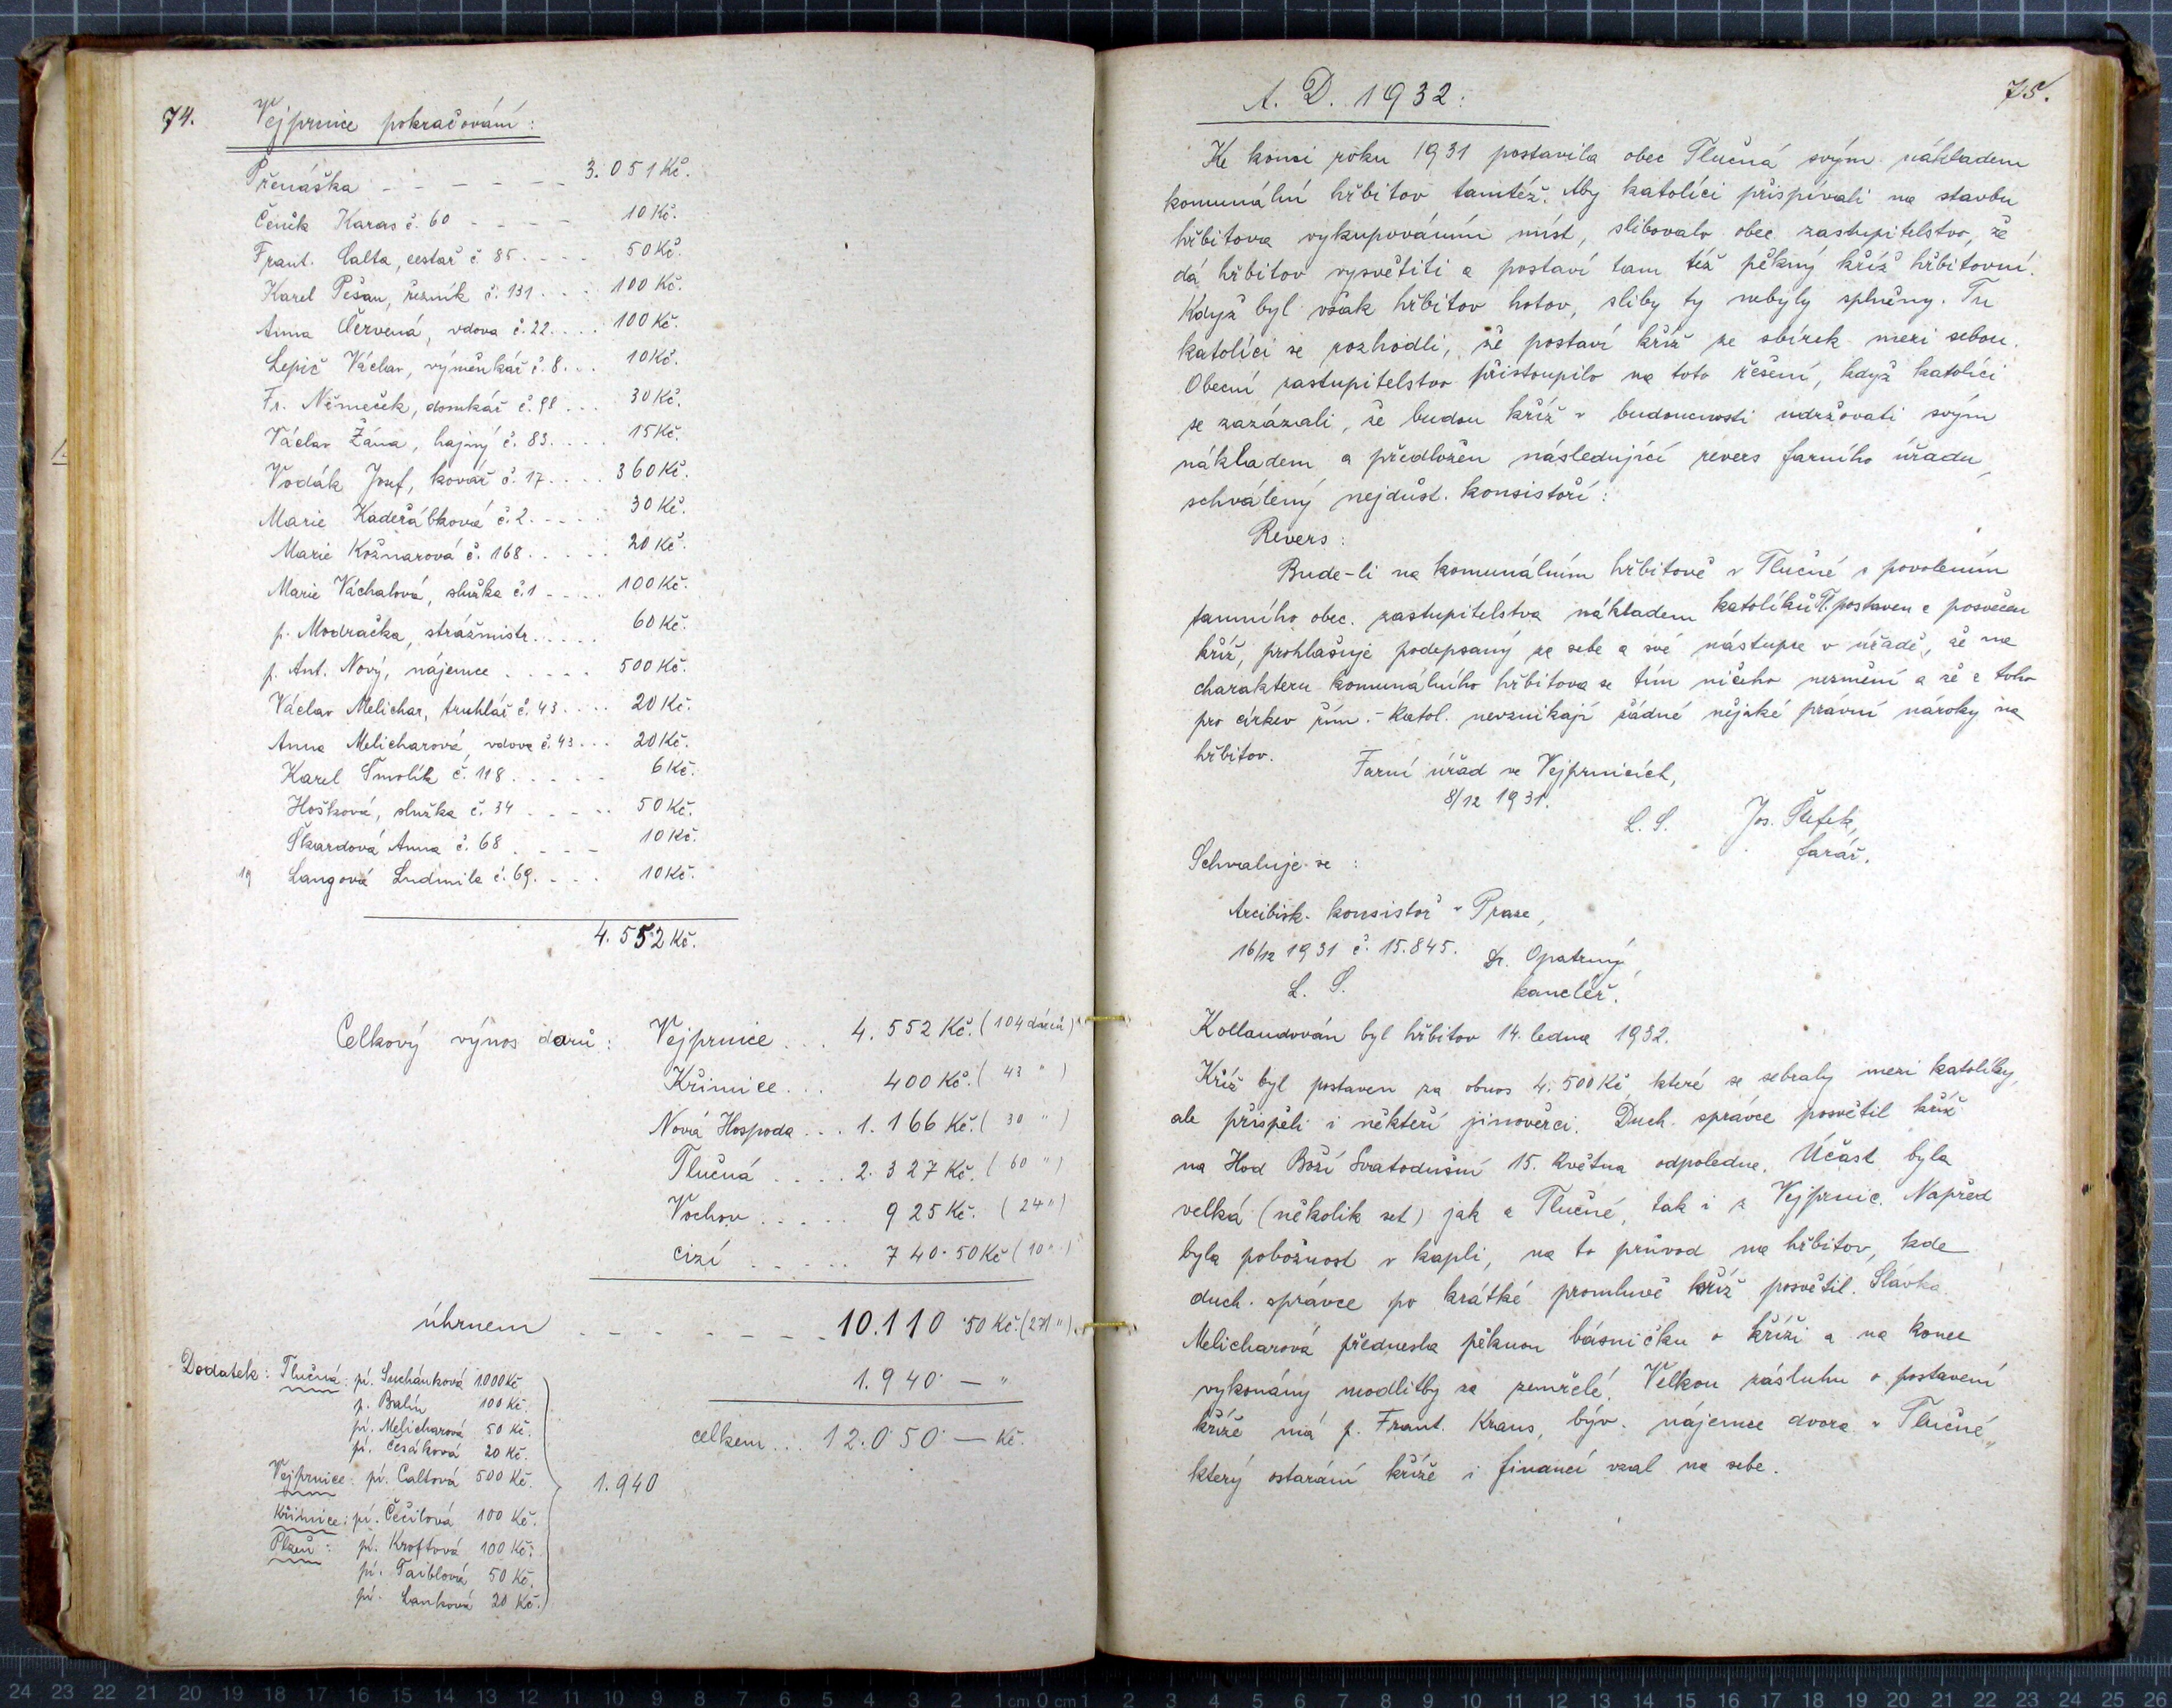 74. Vejprnice pokračování:
Přenáška - - - - - - 3.051 Kč.
Čeněk Karas č. 60 - - - - 10 Kč.
Frant. Calta, cestář č 85 . . . . 50 Kč.
Karel Pešan, řezník č. 131 . . . 100 Kč.
Anna Červená, vdova č. 22 . . . . 100 Kč.
Lepič Václav, výměnkář č. 8 . . . 10 Kč.
Fr. Němeček, domkář č. 98 . . . 30 Kč.
Václav Žána, hajný č. 83 . . . . 15 Kč.
Vodák Josef, kovář č. 17 . . . . 360 Kč.
Marie Kadeřábková č. 2 . - - - . 30 Kč.
Marie Kožnarová č. 168 . . . . . 20 Kč.
Marie Váchalová, služka č. 1 - . . . 100 Kč.
p. Modračka, strážmistr . . . . . 60 Kč.
p. Ant. Nový, nájemce . . . . . 500 Kč.
Václav Melichar, truhlář č. 43 . . . . 20 Kč.
Anna Melicharová, vdova č. 43 . . . 20 Kč.
Karel Smolík č. 118 . . . . . 6 Kč.
Hošková, služka č. 34 . . . . . 50 Kč.
Škardová Anna č. 68 . - - - 10 Kč.
19 Langová Ludmila č. 69 . - . . 10 Kč.
4.552 Kč.
Celkový výnos darů: Vejprnice . . . 4.552 Kč. (104 dárců)
Křimice . . . 400 Kč. ( 43 " )
Nová Hospoda . . . 1.166 Kč. ( 30 " )
Tlučná . . . . 2.327 Kč. ( 60 " )
Vochov . . . . . 925 Kč. ( 24 " )
cizí . . . . . 740·50 Kč ( 10 " )
úhrnem - - - - - - - 10.110·50 Kč. (271 ")
1.940 — "
celkem . . . 12.050 — Kč.
Dodatek: Tlučná: pí. Suchánková 1.000 Kč
p. Balín 100 Kč.
pí. Melicharová 50 Kč.
pí. Česáková 20 Kč.
Vejprnice: pí. Caltová 500 Kč. 1.940
Křimice: pí. Čečilová 100 Kč.
Plzeň: pí. Kroftová 100 Kč.
pí. Taiblová 50 Kč.
pí. Lanková 20 Kč.
A. D. 1932: 75.
Ke konci roku 1931 postavila obec Tlučná svým nákladem
komunální hřbitov tamtéž. Aby katolíci přispívali na stavbu
hřbitova vykupováním míst, slibovalo obec. zastupitelstvo, že
dá hřbitov vysvětiti a postaví tam též pěkný kříž hřbitovní.
Když byl však hřbitov hotov, sliby ty nebyly splněny. Tu
katolíci se rozhodli, že postaví kříž ze sbírek mezi sebou.
Obecní zastupitelstvo přistoupilo na toto řešení, když katolíci
se zavázali, že budou kříž v budoucnosti udržovati svým
nákladem a předložen následující revers farního úřadu,
schválený nejdůst. konsistoří:
Revers:
Bude-li na komunálním hřbitově v Tlučné s povolením
tamního obec. zastupitelstva nákladem katolíků T. postaven a posvěcen
kříž, prohlašuje podepsaný za sebe a své nástupce v úřadě, že na
charakteru komunálního hřbitova se tím ničeho nezmění a že z toho
pro církev řím.-katol. nevznikají žádné nějaké právní nároky na
hřbitov. Farní úřad ve Vejprnicích,
8/12 1931.
L. S. Jos. Štefek,
farář.
Schvaluje se:
Arcibisk. konsistoř v Praze,
16/12 1931 č. 15.845. Dr. Opatrný,
L. S. kancléř.
Kollaudován byl hřbitov 14. ledna 1932.
Kříž byl postaven za obnos 4.500 Kč, které se sebraly mezi katolíky,
ale přispěli i někteří jinověrci. Duch. správce posvětil kříž
na Hod Boží Svatodušní 15. května odpoledne. Účast byla
velká (několik set) jak z Tlučné, tak i z Vejprnic. Napřed
byla pobožnost v kapli, na to průvod na hřbitov, kde
duch. správce po krátké promluvě kříž posvětil. Slávka
Melicharová přednesla pěknou básničku o kříži a na konec
vykonány modlitby za zemřelé. Velkou zásluhu o postavení
kříže má p. Frant. Kraus, býv. nájemce dvora v Tlučné,
který ostarání kříže i financí vzal na sebe.